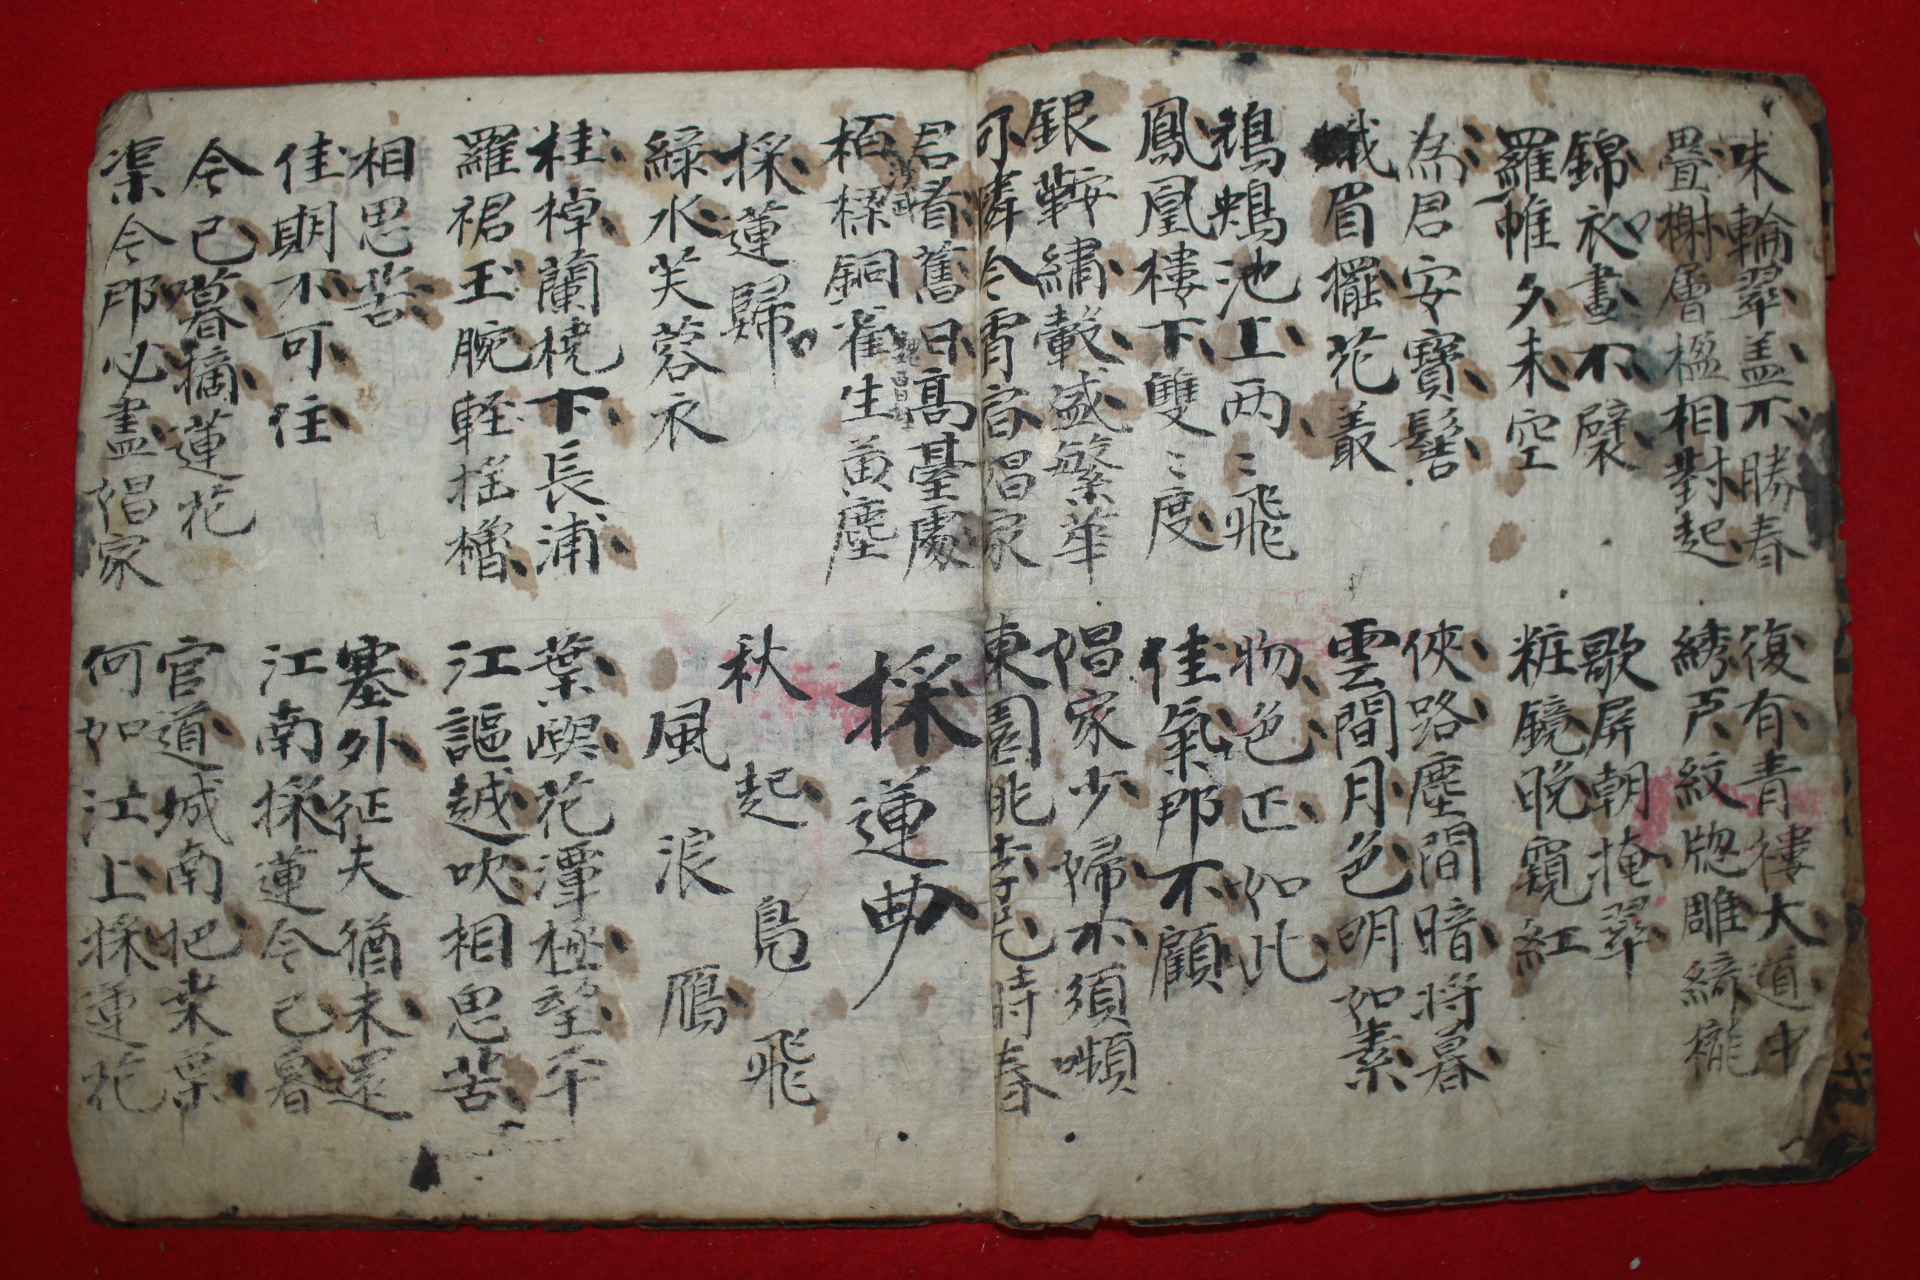 味輪翠盖不勝春
疊榭層楹相對起
復有青樓大道中
綉戶紋牕雕綺櫳
錦衣晝不襞
羅帷夕未空
歌屏朝掩翠
粧鏡晚窺紅
為君安寶髻
蛾眉擺花叢
俠路塵間暗將暮
雲間月色明如素
鴛鴦池上两〻飛
鳳凰樓下雙〻度
物色正如此
佳氣那不顧
銀鞍繡轂盛繁華
可憐今宵宿娼家
倡家少婦不須嚬
東園桃李片時春
君看舊日高臺處
栢樑銅雀生黃塵
採蓮曲
採蓮歸
綠水芙蓉衣
秋起鳧飛
風浪鴈
桂棹蘭橈下長浦
羅裙玉腕軽揺櫓
葉嶼花潭極望平
江謳越吹相思苦
相思苦
佳期不可住
塞外征夫猶未還
江南採蓮今已暮
今已暮摘蓮花
渠今那必盡倡家
官道城南把桒葉
何如江上採蓮花